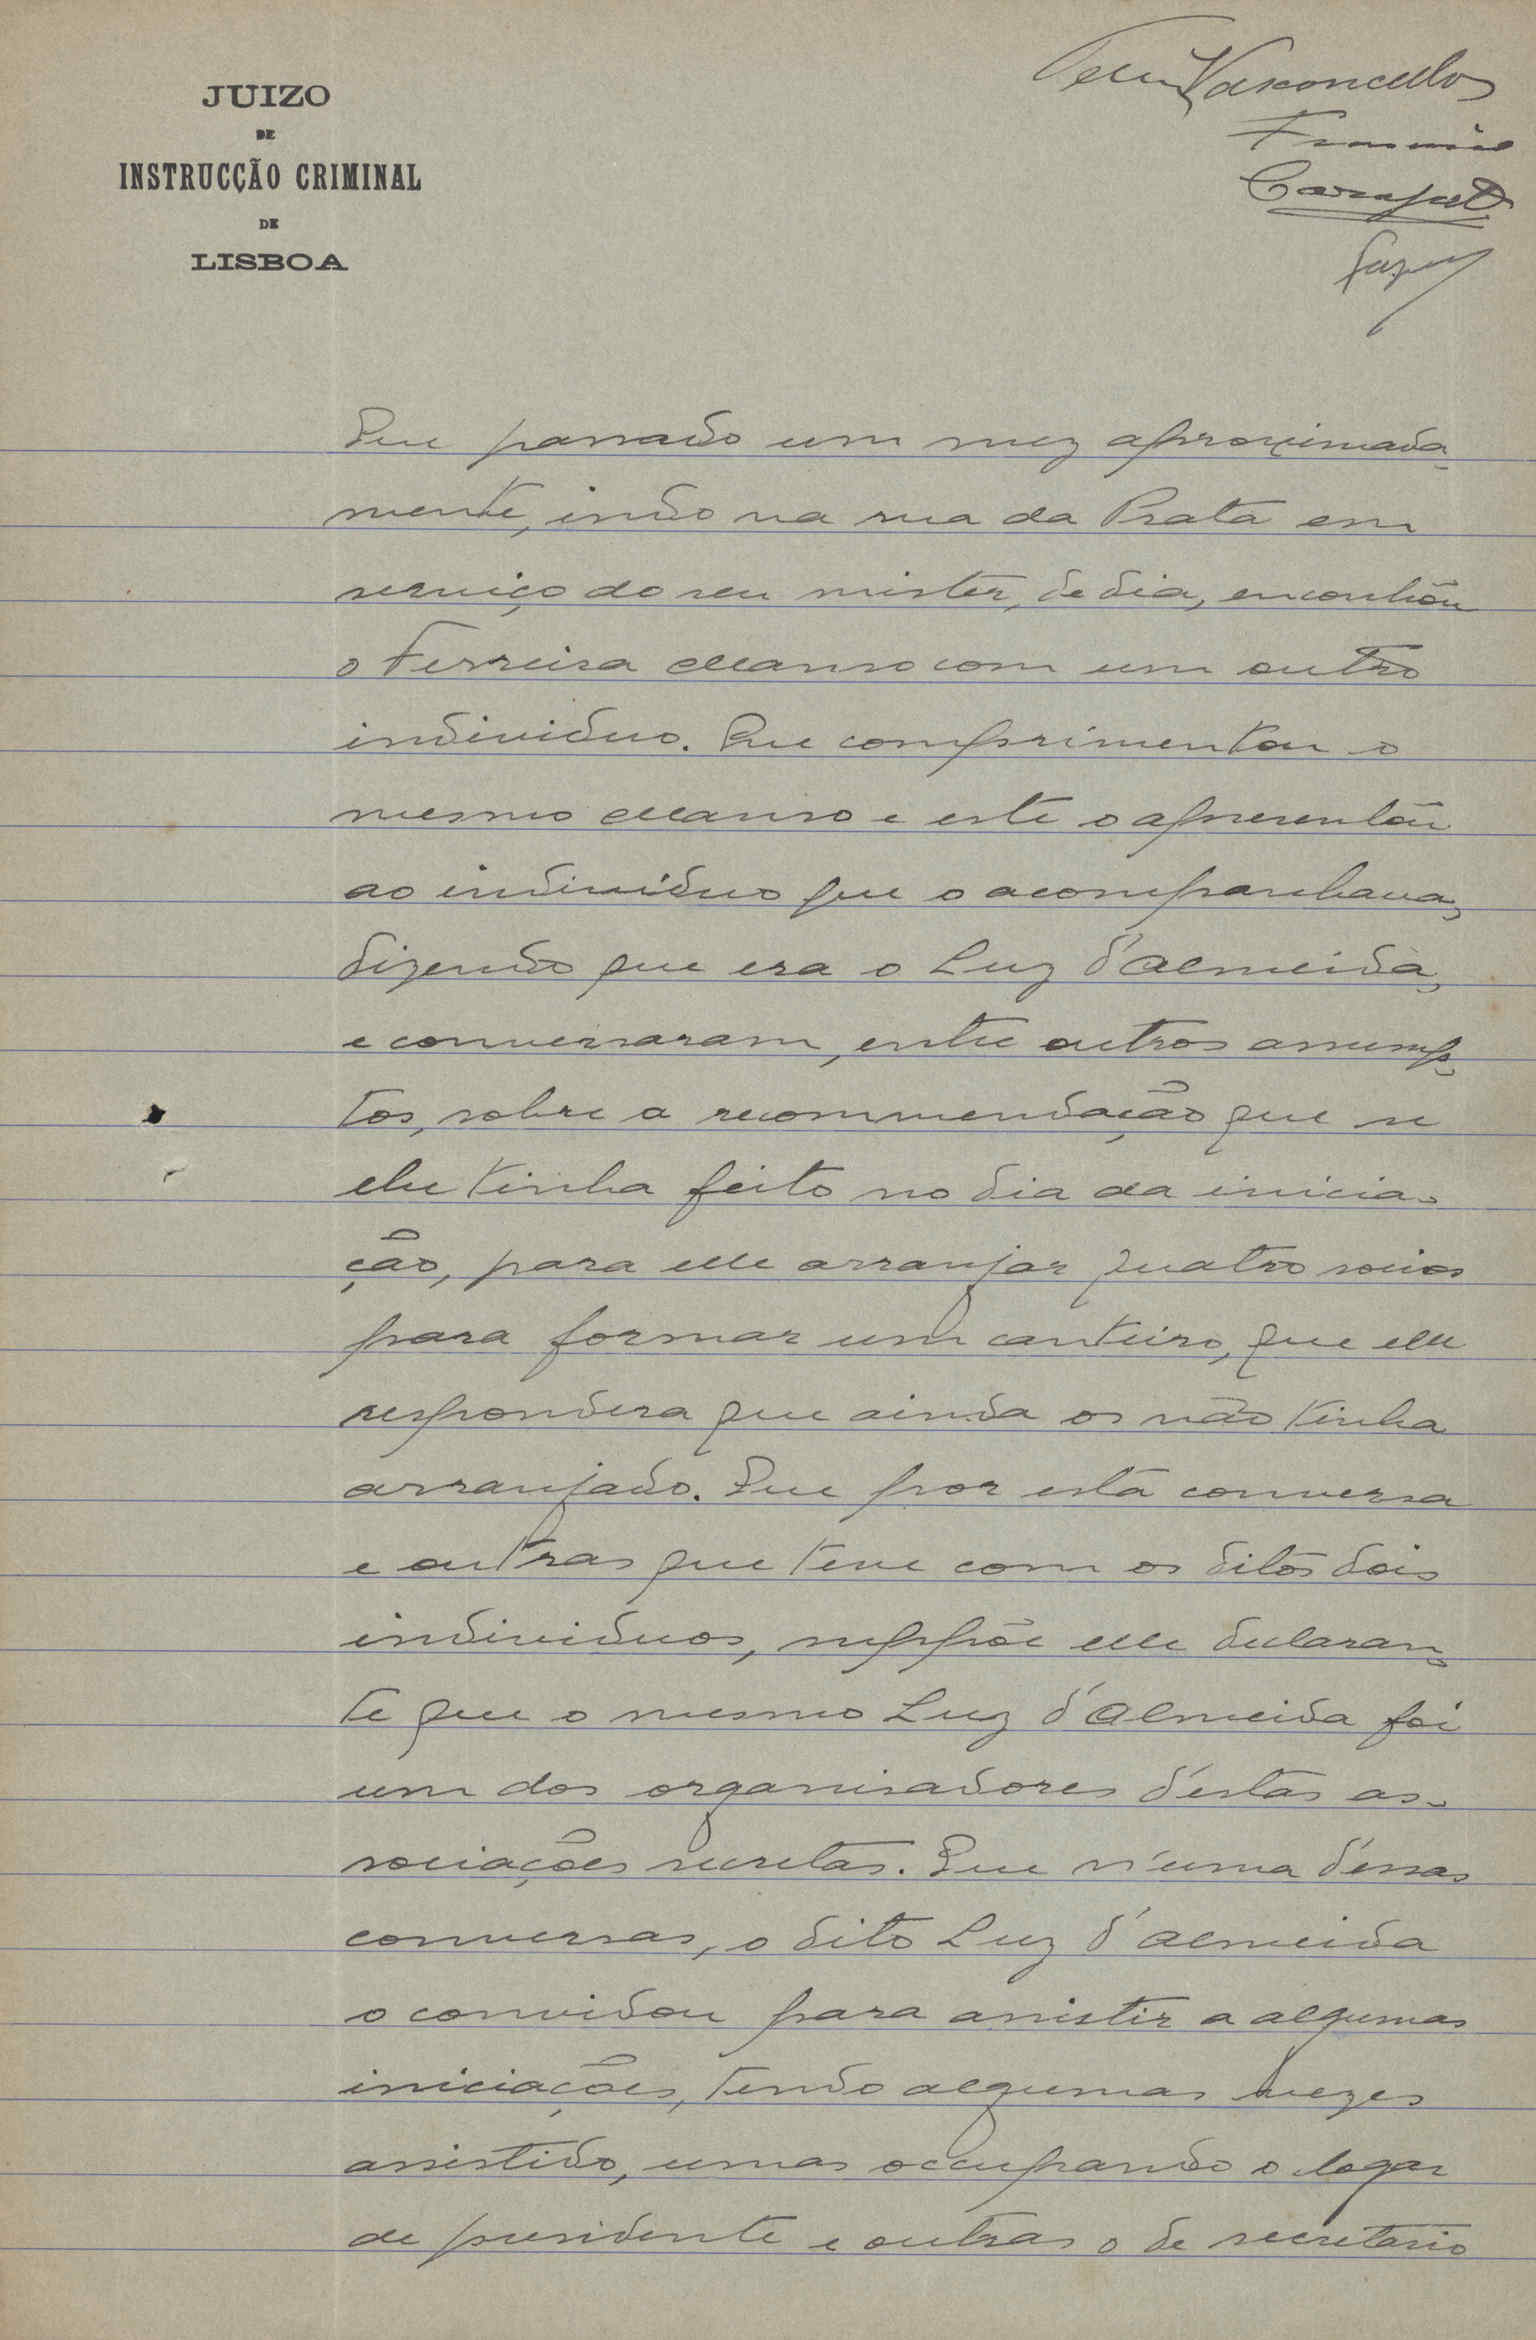 JUIZO
DE
INSTRUCÇÃO CRIMINAL
DE
LISBOA
Vasconcellos
Que passado um mez aproximada-
mente, indo na rua da Prata em
serviço do seu mister, de dia, encontrou
o Ferreira Manso com um outro
individuo. Que comprimentou o
mesmo Manso e este o apresentou
ao individuo que o acompanhava,
dizendo que era o Luz d'Almeida,
e conversaram, entre outros assump-
tos, sobre a recommendação que se
lhe tinha feito no dia da inicia-
ção, para elle arranjar quatro socios
para formar um canteiro, que elle
respondera que ainda os não tinha
arranjado. Que por esta conversa
e outras que teve com os ditos dois
individuos, suppõe elle declaran-
te que o mesmo Luz d'Almeida foi
um dos organisadores d'estas as-
sociações secretas. Que n'uma d'essas
conversas, o dito Luz d'Almeida
o convidou para assistir a algumas
iniciações, tendo algumas vezes
assistido, umas occupando o logar
de presidente e outras o de secretario